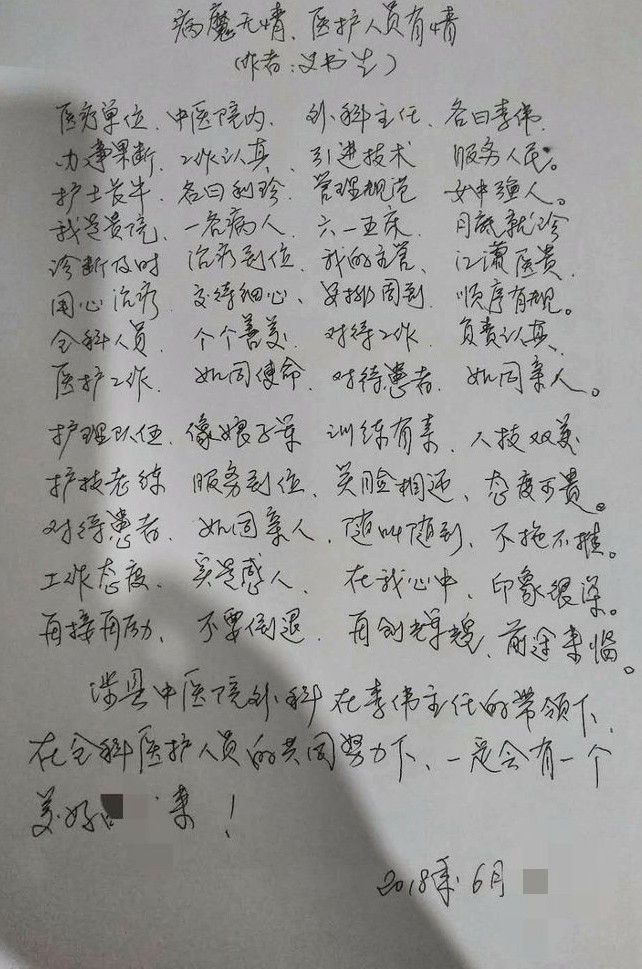 病魔无情、医护人员有情
(作者:义书生)
医疗单位、中医院内、外科主任、各曰李伟、
办事果断、工作认真、引进技术 服务人民。
护士长牛、各曰利珍、管理规范 女中强人。
我是贵院、一名病人、六一五床、月底就珍
诊断及时 治疗到位、我的主管、江潇医贵、
用心治疗、交待细心、安排周到、顺序有规。
全科人员、个个善美、对待工作、负责认真、
医护工作、如同使命、对待患者、如同亲人。
护理队伍、像娘子军 训练有素、人技双美
护技老练 服务到位、笑脸相迎、态度可贵。
对待患者、如同亲人、随叫随到、不拖不推。
工作态度、实是感人、在我心中、印象很深。
再接再励、不要倒退、再创辉煌、前途来临。
涉县中医院外科在李伟主任的带领下、
在全科医护人员的共同努力下、一定会有一个
美好 来!
2018年6月